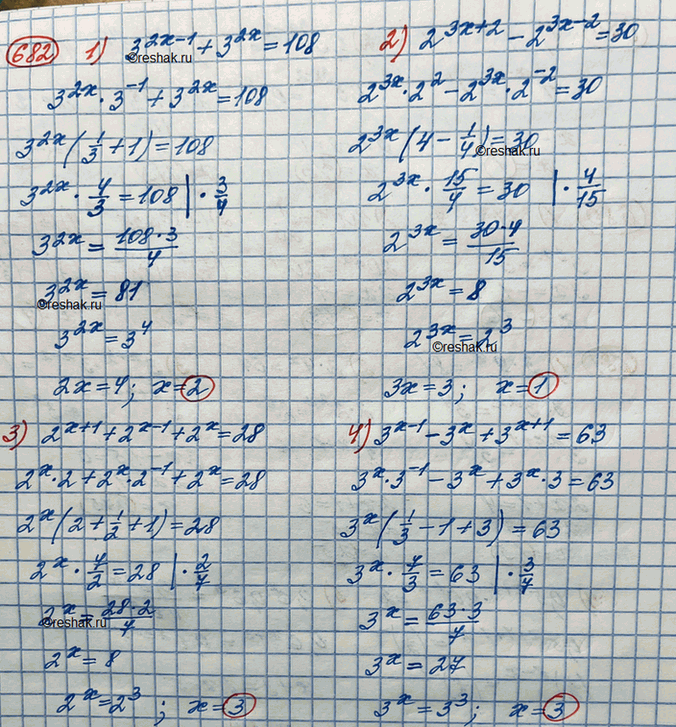 682 1) 3^{2x-1} + 3^{2x} = 108
©reshak.ru
3^{2x} · 3^{-1} + 3^{2x} = 108
3^{2x} (1/3 + 1) = 108
3^{2x} · 4/3 = 108 | · 3/4
3^{2x} = 108·3/4
3^{2x} = 81
©reshak.ru
3^{2x} = 3^4
2x = 4; x = 2
2) 2^{3x+2} - 2^{3x-2} = 30
2^{3x} · 2^2 - 2^{3x} · 2^{-2} = 30
2^{3x} (4 - 1/4) = 30
©reshak.ru
2^{3x} · 15/4 = 30 | · 4/15
2^{3x} = 30·4/15
2^{3x} = 8
2^{3x} = 2^3
©reshak.ru
3x = 3; x = 1
3) 2^{x+1} + 2^{x-1} + 2^x = 28
2^x · 2 + 2^x · 2^{-1} + 2^x = 28
2^x (2 + 1/2 + 1) = 28
2^x · 7/2 = 28 | · 2/7
2^x = 28·2/7
©reshak.ru
2^x = 8
2^x = 2^3; x = 3
4) 3^{x-1} - 3^x + 3^{x+1} = 63
3^x · 3^{-1} - 3^x + 3^x · 3 = 63
3^x (1/3 - 1 + 3) = 63
3^x · 7/3 = 63 | · 3/7
3^x = 63·3/7
3^x = 27
3^x = 3^3; x = 3